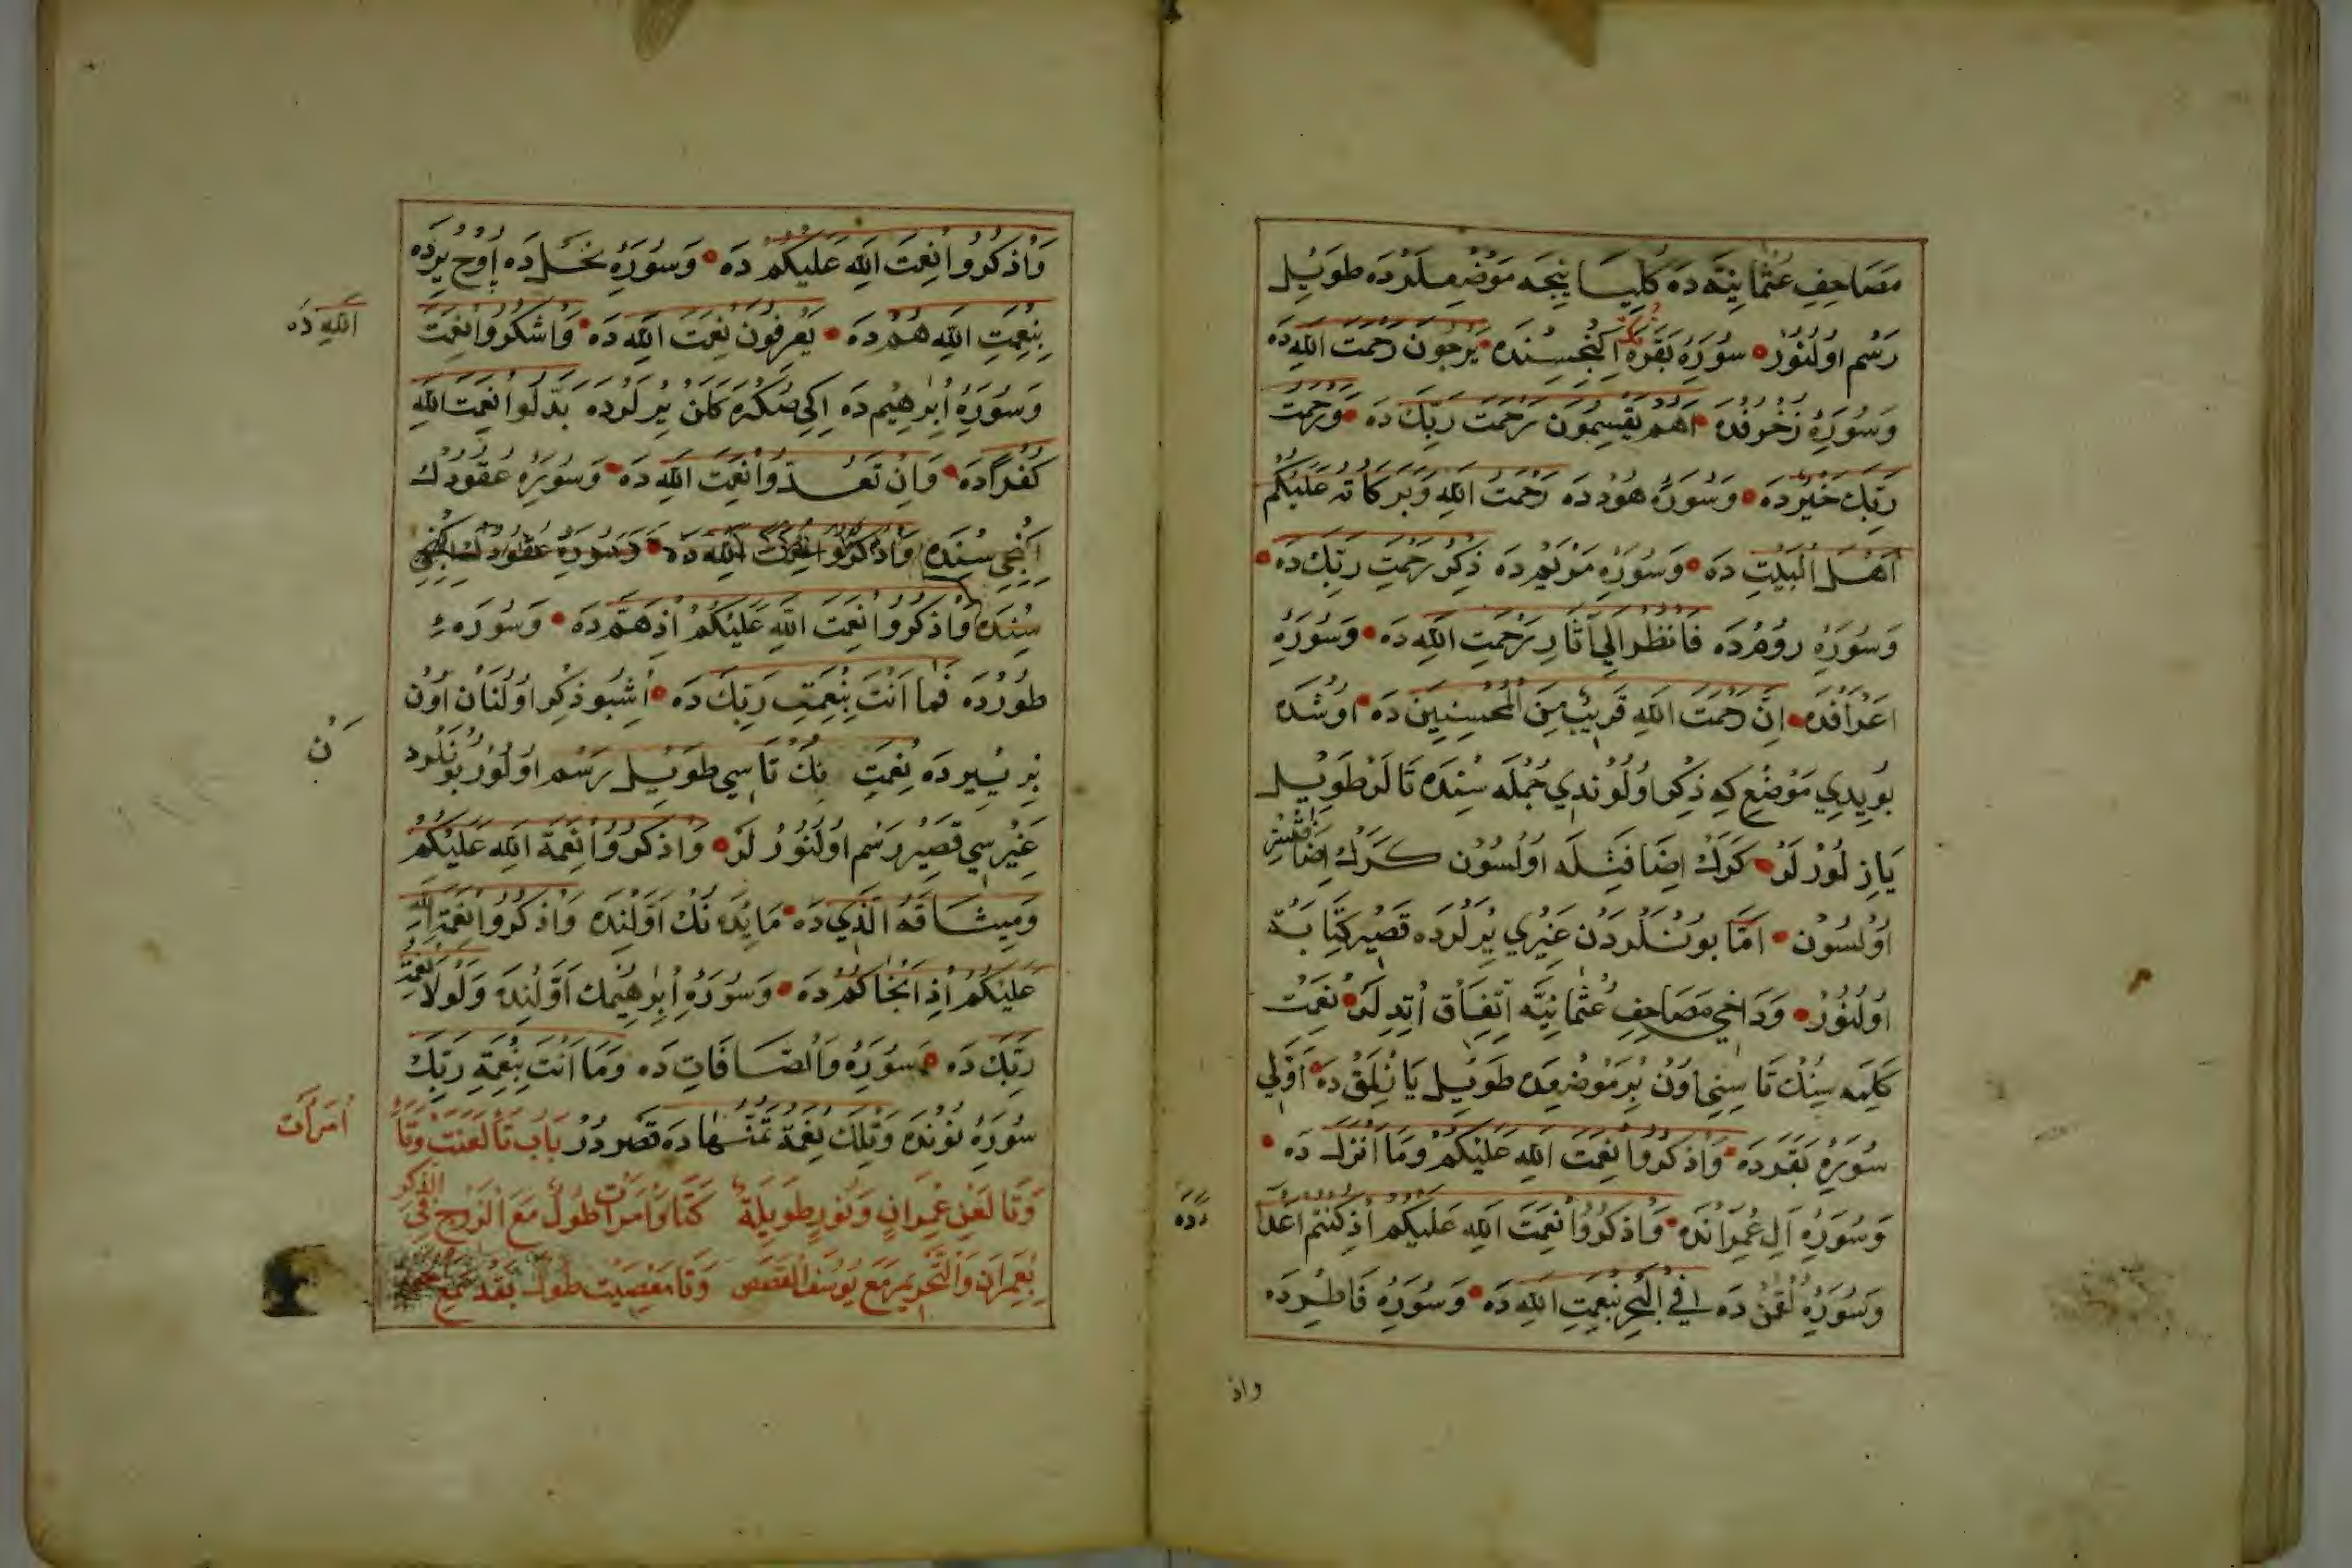 مَصَاحِفِ عُثْمَانِيَّه دَه كُلِّيسَا نِيجَه مَوْضِعْلَرْدَه طَوِيلْ
رَسْم اوُلُنُورْ سُورَۀِ بَقَرَه نِكْ اِكِنْجِسِنْدَه يَرْجُونَ رَحْمَتَ اللّٰهِ دَه
وَسُورَۀِ زُخْرُفْدَه اَهُمْ يَقْسِمُونَ رَحْمَتَ رَبِّكَ دَه وَرَحْمَتُ
رَبِّكَ خَيْرٌ دَه وَسُورَۀِ هُودْدَه رَحْمَتُ اللّٰهِ وَبَرَكَاتُه عَلَيْكُمْ
اَهْلَ الْبَيْتِ دَه وَسُورَۀِ مَرْيَمْدَه ذِكْرُ رَحْمَتِ رَبِّكَ دَه
وَسُورَۀِ رُومْدَه فَانْظُرْ اِلَى اٰثَارِ رَحْمَتِ اللّٰهِ دَه وَسُورَۀِ
اَعْرَافْدَه اِنَّ رَحْمَتَ اللّٰهِ قَرِيبٌ مِنَ الْمُحْسِنِينَ دَه اوُشْدَه
بُو يِدِي مَوْضِعْ كِه ذِكْر اوُلُونْدِي جُمْلَه سِنْدَه تَالَرْ طَوِيلْ
يَازِلُورْلَرْ كَرَكْ اِضَافَتِلَه اوُلْسُونْ كَرَكْ اِضَافَتْسِزْ
اوُلْسُونْ اَمَّا بُونْلَرْدَنْ غَيْرِي يِرْلَرْدَه قَصِيرْ كِتَابَة
اوُلُنُورْ وَدَاخِي مَصَاحِفِ عُثْمَانِيَّه اِتِّفَاقْ اِتْدِلَرْ نِعْمَتْ
كَلِمَه سِنُكْ تَاسِنِي اوُنْ بِرْ مَوْضِعْدَه طَوِيلْ يَازِلْمَقْدَه اَوَّلِي
سُورَۀِ بَقَرَدَه وَاذْكُرُوا نِعْمَتَ اللّٰهِ عَلَيْكُمْ وَمَا اَنْزَلَ دَه
وَسُورَۀِ اٰلِ عِمْرَانْدَه وَاذْكُرُوا نِعْمَتَ اللّٰهِ عَلَيْكُمْ اِذْ كُنْتُمْ اَعْدَا
ءً دَه
وَسُورَۀِ لُقْمَنْ دَه فِي الْبَحْرِ بِنِعْمَتِ اللّٰهِ دَه وَسُورَۀِ فَاطِرْدَه
واذ
وَاذْكُرُوا نِعْمَتَ اللّٰهِ عَلَيْكُمْ دَه وَسُورَۀِ نَحْلْ دَه اوُچْ يِرْدَه
بِنِعْمَتِ اللّٰهِ هُمْ دَه يَعْرِفُونَ نِعْمَتَ اللّٰهِ دَه وَاشْكُرُوا نِعْمَتَ
اللّٰهِ دَه
وَسُورَۀِ اِبْرٰهِيمْ دَه اِكِي صُكْرَه كَلَنْ يِرْلَرْدَه بَدَّلُوا نِعْمَتَ اللّٰهِ
كُفْرًا دَه وَاِنْ تَعُدُّوا نِعْمَتَ اللّٰهِ دَه وَسُورَۀِ عُقُودُكْ
اِكِنْجِي سِنْدَه وَاذْكُرُوا نِعْمَتَ اللّٰهِ دَه وَسُورَۀِ عُقُودُكْ اِكِنْجِي
سِنْدَه وَاذْكُرُوا نِعْمَتَ اللّٰهِ عَلَيْكُمْ اِذْ هَمَّ دَه وَسُورَه ءِ
طُورْدَه فَمَا اَنْتَ بِنِعْمَتِ رَبِّكَ دَه اُشْبُو ذِكْر اوُلُنَانْ اوُنْ
بِرْ يِيرْدَه نِعْمَتِ نِكْ تَاسِي طَوِيلْ رَسْم اوُلُنُورْ بُونْلَرْدَ
نْ
غَيْرِيسِي قَصِيرْ رَسْم اوُلُنُورْلَرْ وَاذْكُرُوا نِعْمَةَ اللّٰهِ عَلَيْكُمْ
وَمِيثَاقَهُ الَّذِي دَه مَايِدَه نُكْ اَوَّلِنْدَه وَاذْكُرُوا نِعْمَةَ اللّٰهِ
عَلَيْكُمْ اِذْ اَنْجَاكُمْ دَه وَسُورَۀِ اِبْرٰهِيمُكْ اَوَّلِنْدَه وَلَوْلَا نِعْمَةُ
رَبِّكَ دَه سُورَۀِ وَالصَّافَّاتِ دَه وَمَا اَنْتَ بِنِعْمَةِ رَبِّكَ
سُورَۀِ نُونْدَه وَتِلْكَ نِعْمَةٌ تَمُنُّهَا دَه قَصِرْدُرْ بَاب تَا لَعْنَتْ وَتَا
اُمْرَاَت
وَتَا لَعْنِ عِمْرَانٍ وَنُورٍ طَوِيلَةٌ كَتَا وَامْرَاَتٍ طُولٌ مَعَ الزَّوْجِ فِي الذِّكْرِ
بِعِمْرَانَ وَالتَّحْرِيمِ مَعْ يُوسُفَ الْقَصَصِ وَتَا مَعْصِيَتْ طُولٌ بِقَدْ سَمِعْ